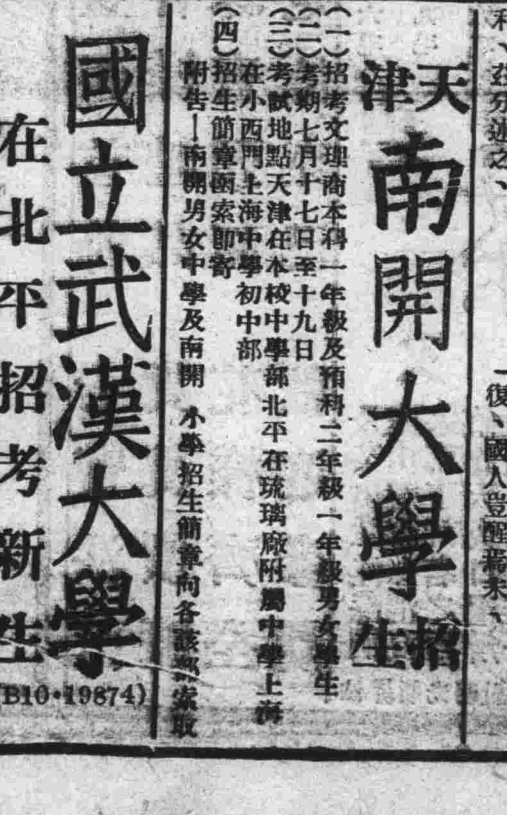 利、茲分述之、
復、國人豈醒焉未、
天津
南開大學
招生
(一)招考文理商本科一年級及預科二年級一年級男女學生
(二)考期七月十七日至十九日
(三)考試地點天津在本校中學部北平在琉璃廠附屬中學上海
在小西門上海中學初中部
(四)招生簡章函索卽寄
附告—南開男女中學及南開 小學招生簡章向各該部索取
國立武漢大學
在北平招考新生
(B10·19874)